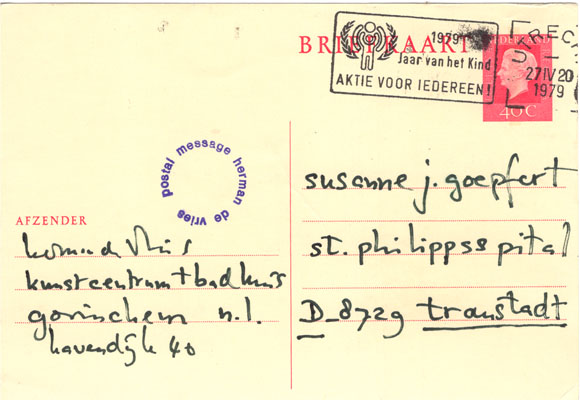 BRIEFKAART
1979
Jaar van het Kind
AKTIE VOOR IEDEREEN!
UTREC
27 IV 20
1979
40 C
postal message herman de vries
susanne j. goepfert
st. philippsspital
D-8729 transtadt
AFZENDER
herman de vries
kunstcentrum + badhuis
gorinchem n.l.
havendijk 40